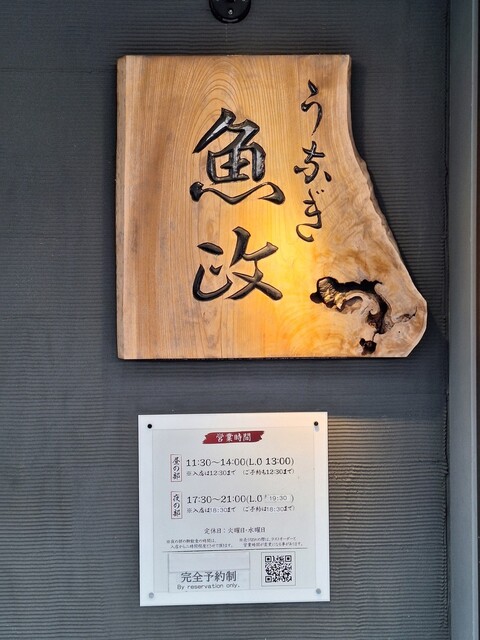 うなぎ
魚政
営業時間
昼の部
11:30～14:00(L.O 13:00)
※入店は12:30まで （ご予約も12:30まで）
夜の部
17:30～21:00(L.O 19:30)
※入店は18:30まで （ご予約は18:30まで）
定休日：火曜日・水曜日
完全予約制
By reservation only.